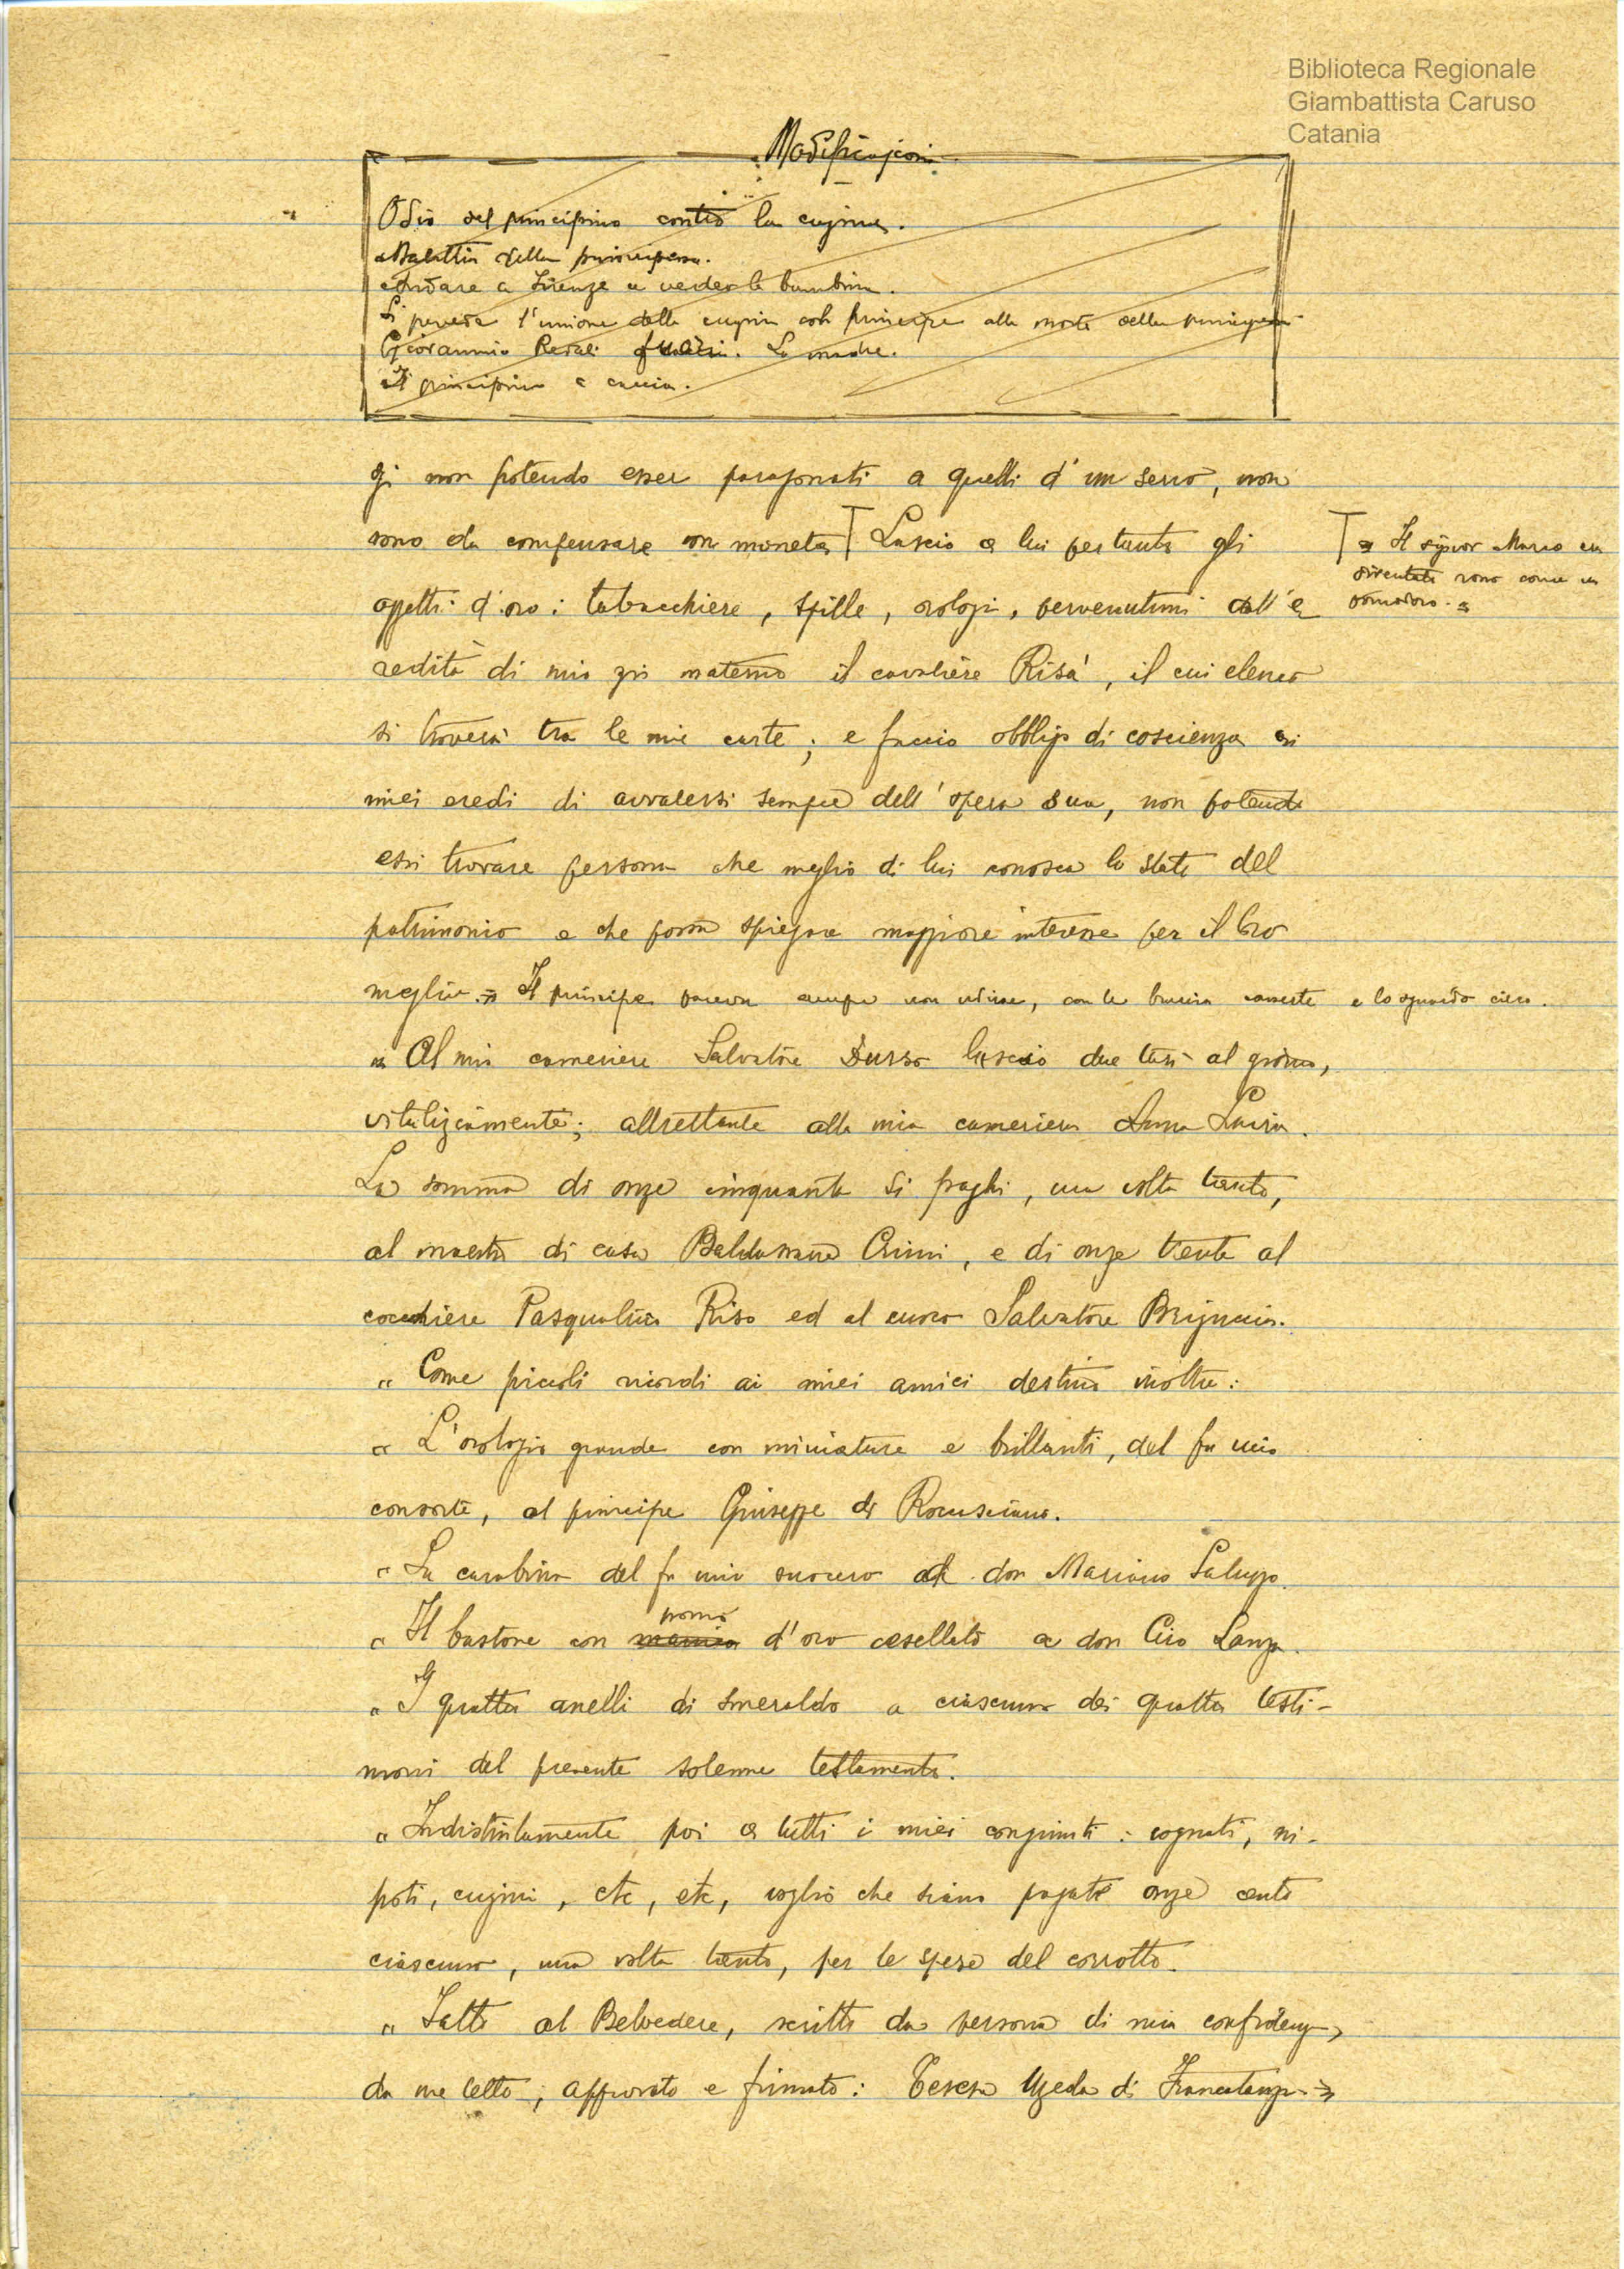 Biblioteca Regionale
Giambattista Caruso
Catania
Modificazioni
Odio del principino contro la cugina.
Malattia della principessa.
Andare a Firenze a vedere la bambina.
Si preveda l'unione della cugina col principe alla morte della principessa
Giovannino Radalì. La madre.
Il principino a caccia.
gi non potendo esser paragonati a quelli d'un servo, non
sono da compensare con moneta. Lascio a lui pertanto gli
« Il signor Marco era
diventato rosso come un
pomodoro. »
oggetti d'oro: tabacchiere, spille, orologi, pervenutimi dall'e
redità di mio zio materno il cavaliere Risà, il cui elenco
si troverà tra le mie carte; e faccio obbligo di coscienza ai
miei eredi di avvalersi sempre dell'opera sua, non potendo
essi trovare persona che meglio di lui conosca lo stato del
patrimonio e che possa spiegare maggiore interesse per il loro
meglio. » Il principe pareva sempre non udisse, con le braccia conserte e lo sguardo cieco.
« Al mio cameriere Salvatore Durso lascio due tarì al giorno,
vitaliziamente; altrettanto alla mia cameriera Anna Lauria.
La somma di onze cinquanta si paghi, una volta tanto,
al maestro di casa Baldassarre Crimi, e di onze trenta al
cocchiere Pasqualino Riso ed al cuoco Salvatore Briguccia.
« Come piccoli ricordi ai miei amici destino inoltre:
« L'orologio grande con miniature e brillanti, del fu mio
consorte, al principe Giuseppe di Roccasciano.
« La carabina del fu mio suocero a don Mariano Paluzzo.
« Il bastone con pomo d'oro cesellato a don Ciro Lanza.
« I quattro anelli di smeraldo a ciascuno dei quattro testi-
moni del presente solenne testamento.
« Indistintamente poi a tutti i miei congiunti: cognati, ni-
poti, cugini, etc, etc, voglio che siano pagate onze cento
ciascuno, una volta tanto, per le spese del corrotto.
« Fatto al Belvedere, scritto da persona di mia confidenza,
da me letto, approvato e firmato: Teresa Uzeda di Francalanza »